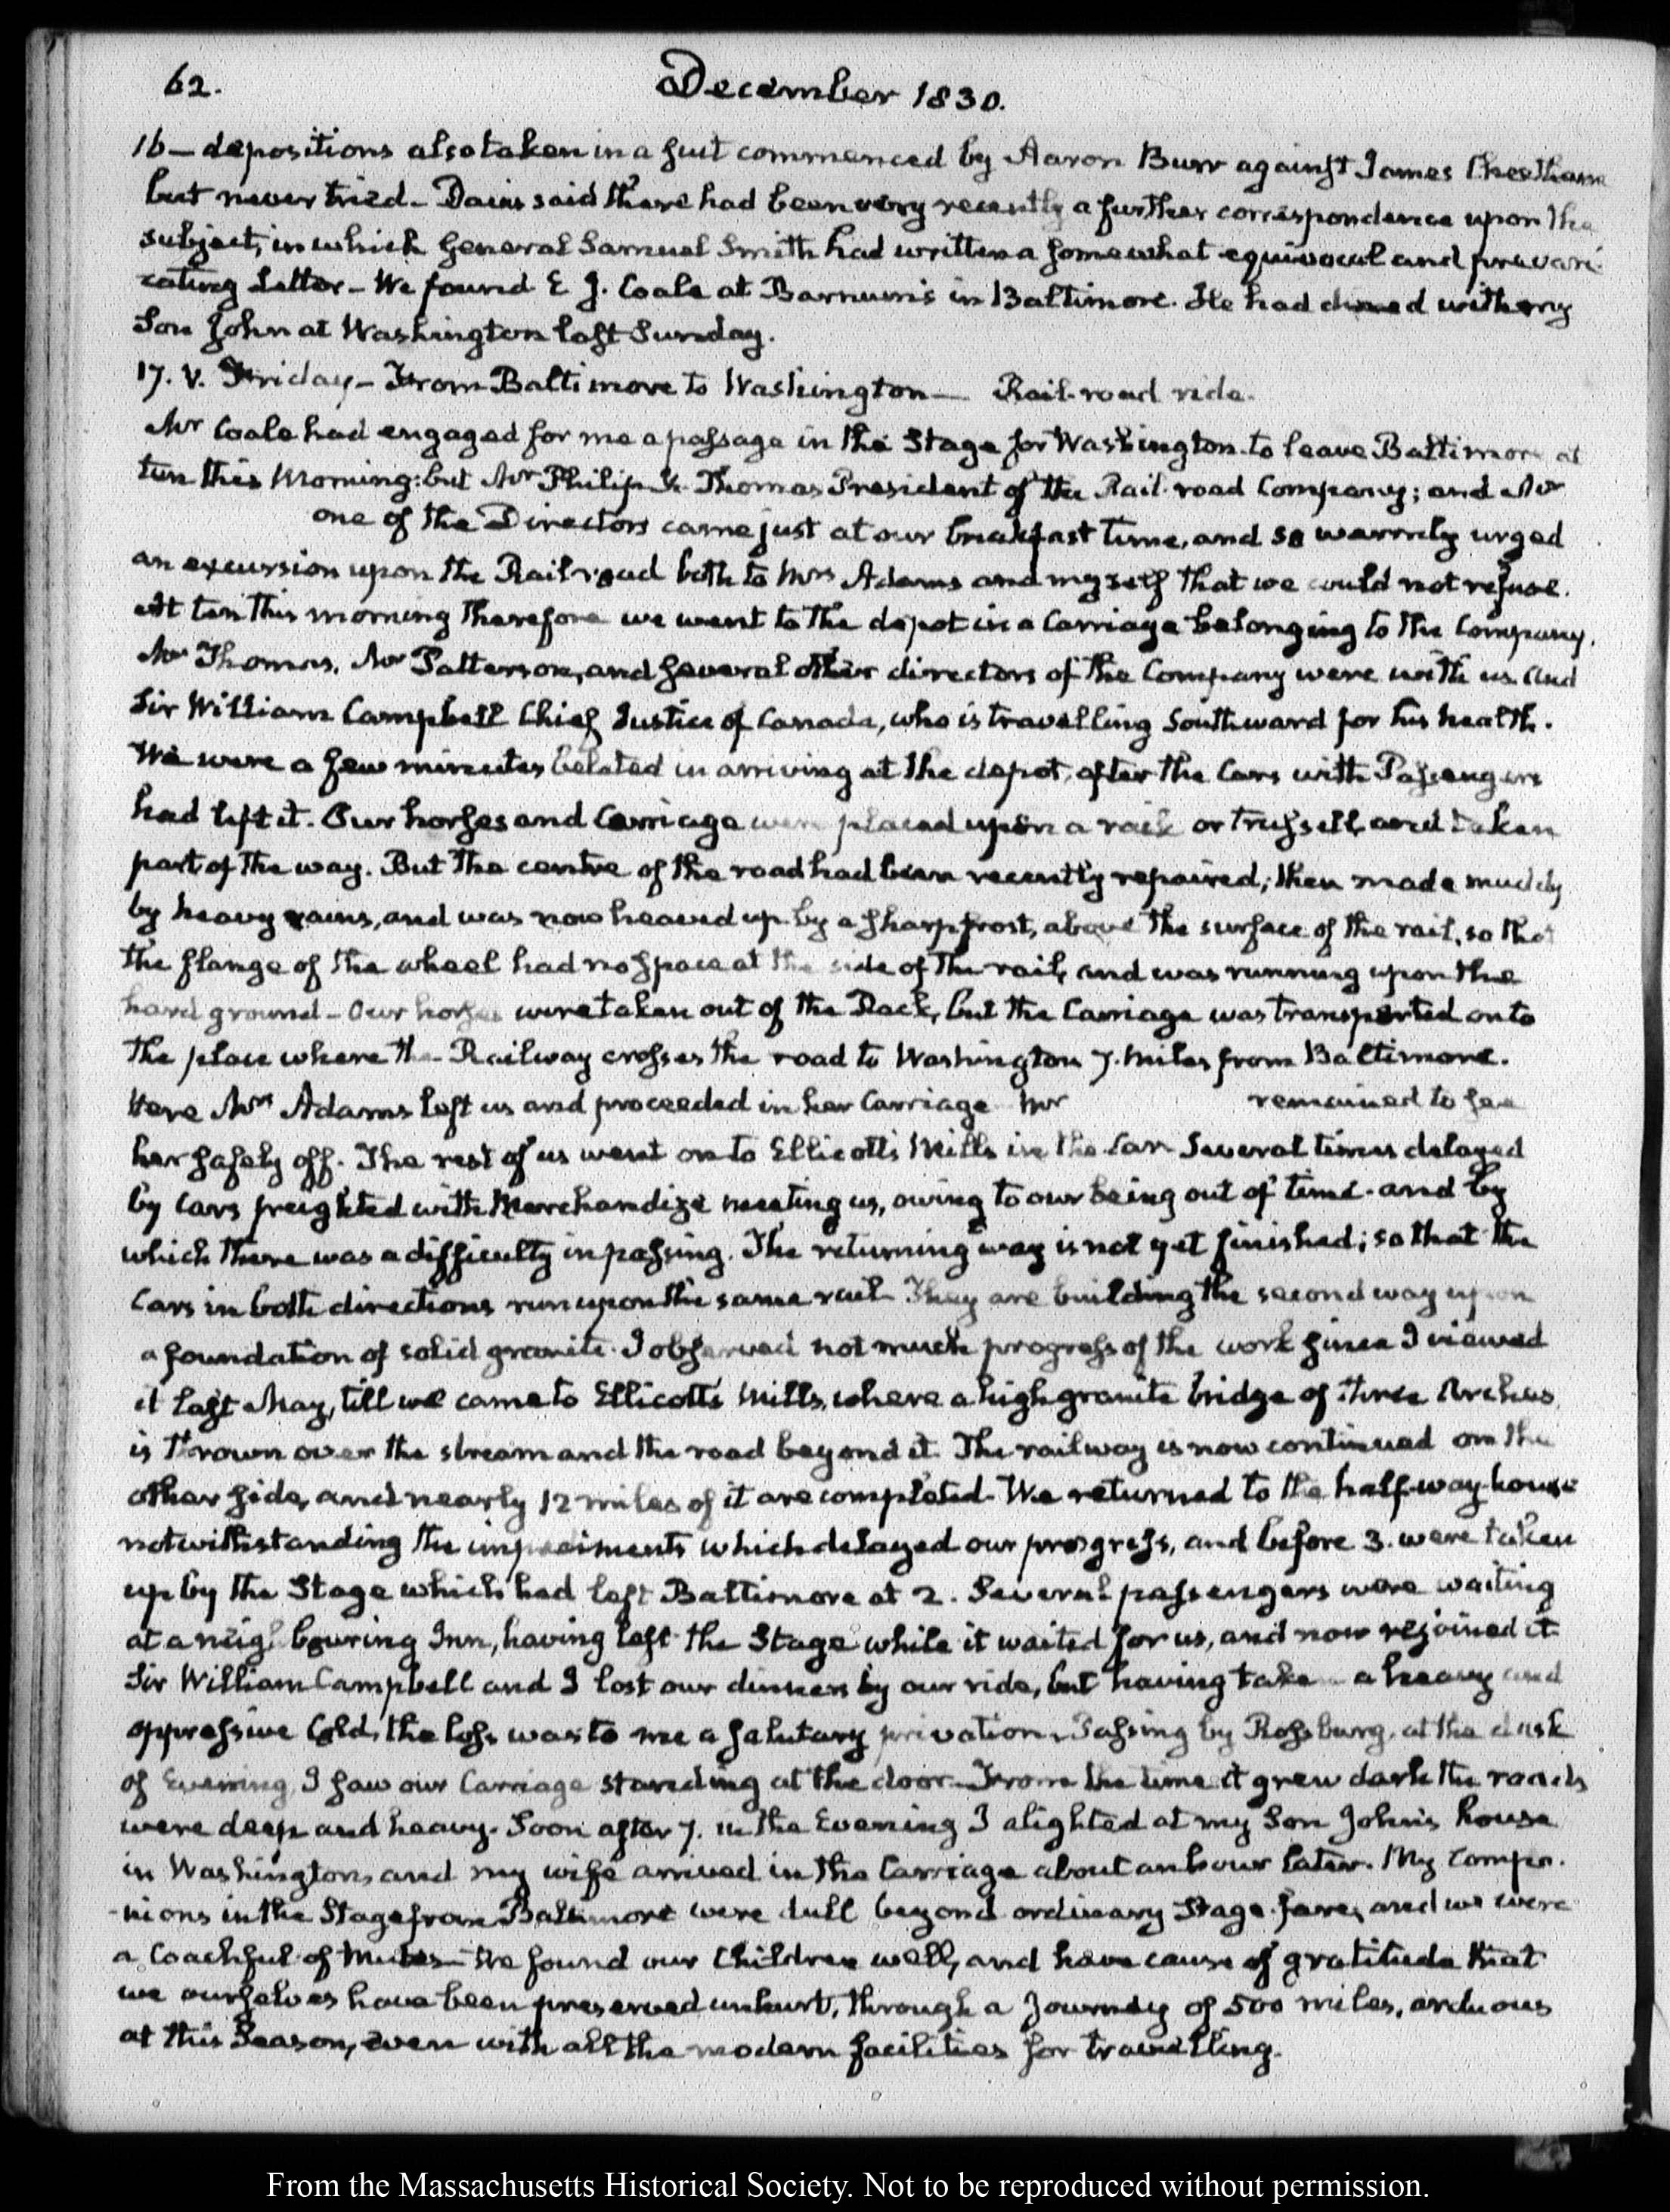 62.
December 1830.
16 — depositions also taken in a suit commenced by Aaron Burr against James Cheetham
but never tried — Davis said there had been very recently a further correspondence upon the
subject, in which General Samuel Smith had written a somewhat equivocal and prevari-
cating Letter — We found E J. Coale at Barnum's in Baltimore. He had dined with my
Son John at Washington last Sunday.
17. V. Friday — From Baltimore to Washington — Rail-road ride.
Mr Coale had engaged for me a passage in the Stage for Washington to leave Baltimore at
ten this Morning: but Mr Philip Thomas President of the Rail-road Company; and Mr
one of the Directors came just at our breakfast time, and so warmly urged
an excursion upon the Rail-road both to Mrs Adams and myself that we could not refuse.
At ten this morning therefore we went to the depot in a Carriage belonging to the Company.
Mr Thomas, Mr Patterson, and several other directors of the Company were with us and
Sir William Campbell Chief Justice of Canada, who is travelling Southward for his health.
We were a few minutes belated in arriving at the depot, after the Cars with Passengers
had left it. Our horses and Carriage were placed upon a rack or trussell, and taken
part of the way. But the centre of the road had been recently repaired; then made muddy
by heavy rains, and was now heaved up by a sharp frost, above the surface of the rail, so that
the flange of the wheel had no space at the side of the rail, and was running upon the
hard ground — Our horses were taken out of the Rack, but the Carriage was transported on to
the place where the Railway crosses the road to Washington 7. miles from Baltimore.
Here Mrs Adams left us and proceeded in her Carriage Mr remained to see
her safely off. The rest of us went on to Ellicott's Mills in the Car Several times delayed
by Cars freighted with Merchandize meeting us, owing to our being out of time. and by
which there was a difficulty in passing. The returning way is not yet finished; so that the
Cars in both directions run upon the same rail They are building the second way upon
a foundation of solid granite. I observed not much progress of the work since I viewed
it last May, till we came to Ellicotts Mills, where a high granite bridge of three Arches
is thrown over the stream and the road beyond it. The railway is now continued on the
other side, and nearly 12 miles of it are completed. We returned to the half-way-house
notwithstanding the impediments which delayed our progress, and before 3. were taken
up by the Stage which had left Baltimore at 2. Several passengers were waiting
at a neighbouring Inn, having left the Stage while it waited for us, and now rejoined it
Sir William Campbell and I lost our dinners by our ride, but having taken a heavy and
oppressive Cold, the loss was to me a salutary privation. Passing by Rossburg, at the dusk
of Evening, I saw our Carriage standing at the door. From the time it grew dark the roads
were deep and heavy. Soon after 7. in the Evening I alighted at my Son John's house
in Washington, and my wife arrived in the Carriage about an hour later. My Compa-
-nions in the Stage from Baltimore were dull beyond ordinary Stage fare, and we were
a Coachful of Mutes — We found our Children well, and have cause of gratitude that
we ourselves have been preserved unhurt, through a Journey of 500 miles, arduous
at this Season, even with all the modern facilities for travelling.
From the Massachusetts Historical Society. Not to be reproduced without permission.